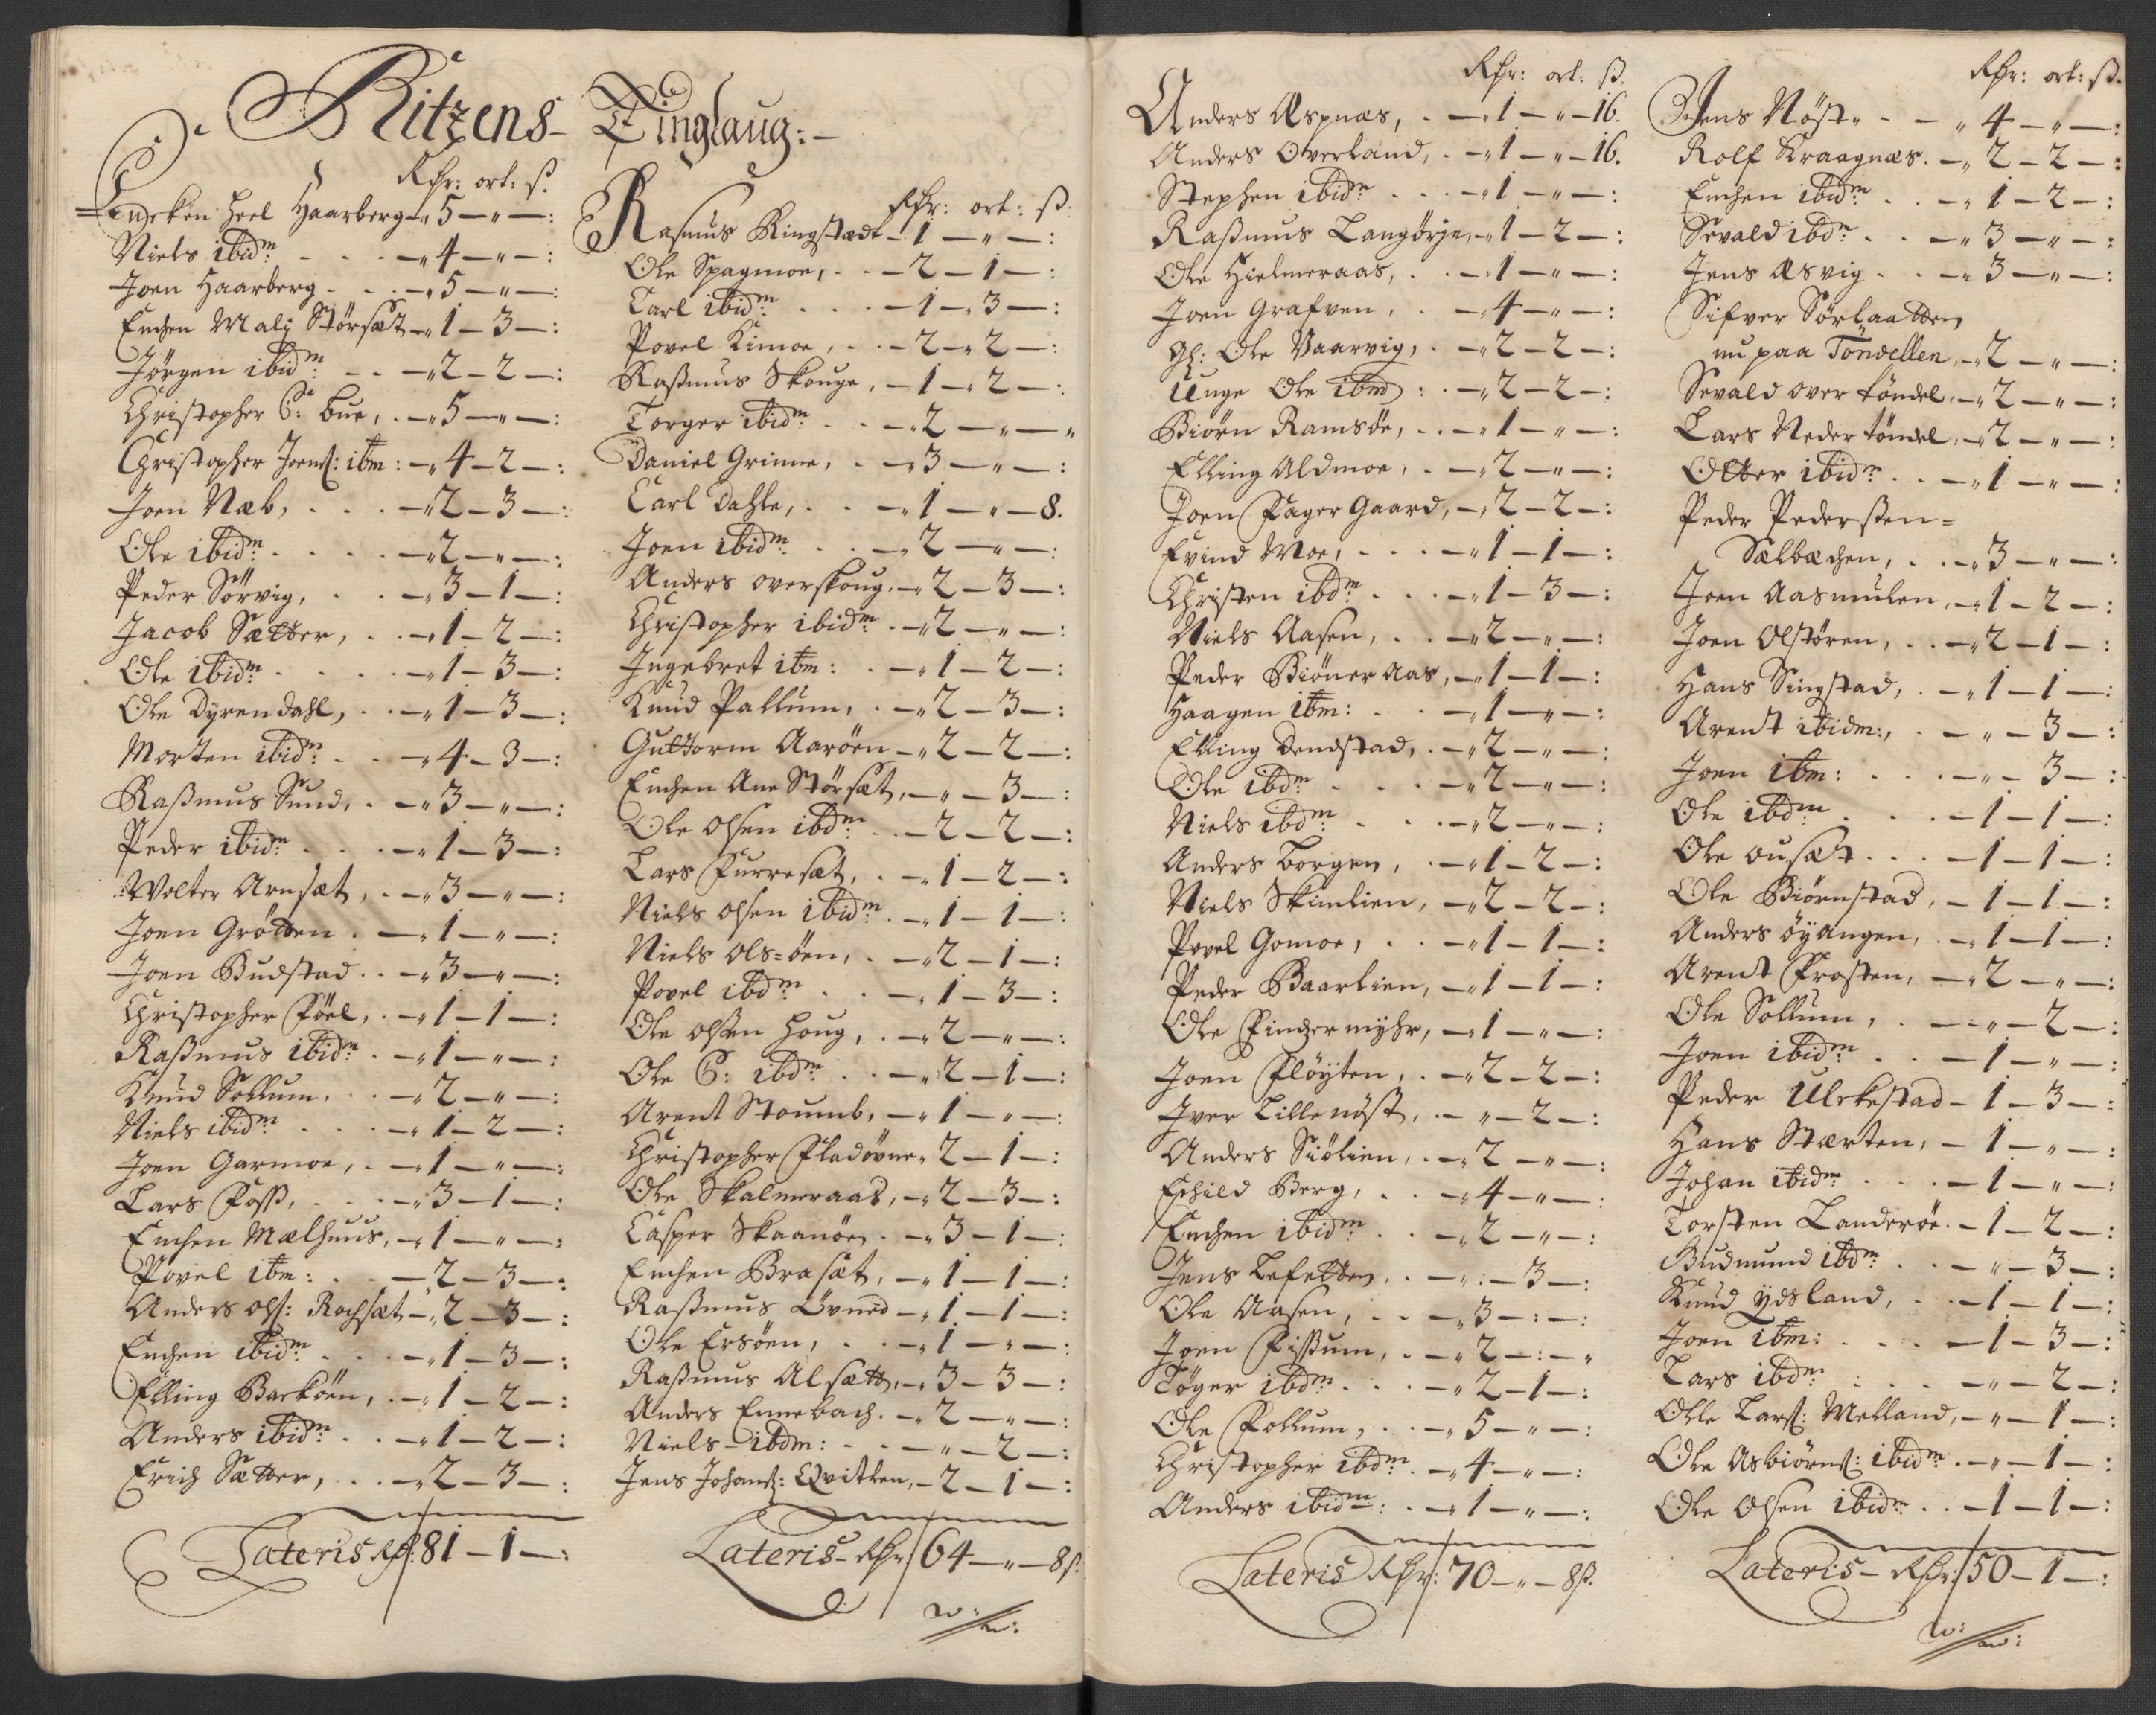 Ritzens- Tinglaug:-
Rdr: ort: ß.
Encken Heel Haarberg -„ 5 -„-:
Niels ibidm - - - -„ 4 -„-:
Joen Haarberg - - - -„ 5 -„-:
Enchen Malj Störsæt -„ 1 - 3 -:
Jörgen ibidm - - -„ 2 - 2 -:
Christopher C: bue, . -„ 5 -„-:
Christopher Joens: ibm: -„ 4 - 2 -:
Joen Næb, . . . -„ 2 - 3 -:
Ole ibidm . . . . -„ 2 -„-:
Peder Sörvig, . . -„ 3 - 1 -:
Jacob Sætter, . . -„ 1 - 2 -:
Ole ibidm . . . . -„ 1 - 3 -:
Ole Dyrendahl, . . -„ 1 - 3 -:
Morten ibidm . . -„ 4 - 3 -:
Raßmus Sund, . -„ 3 -„-:
Peder ibidm . . . -„ 1 - 3 -:
Wolter Arnsæt, . -„ 3 -„-:
Joen Grötten . -„ 1 -„-:
Joen Budstad . . -„ 3 -„-:
Christopher Föel, . -„ 1 - 1 -:
Raßmus ibidm . -„ 1 -„-:
Knud Sollum, . . -„ 2 -„-:
Niels ibidm . . . -„ 1 - 2 -:
Joen Garmoe, . -„ 1 -„-:
Lars Foss, . . . -„ 3 - 1 -:
Enchen Mælhuus, -„ 1 -„-:
Povel ibm: . . - 2 - 3 -:
Anders Ols: Rochsæt -„ 2 - 3 -:
Enchen ibidm . . . -„ 1 - 3 -:
Elling Barköen, . -„ 1 - 2 -:
Anders ibidm . . -„ 1 - 2 -:
Erich Sætter, . . -„ 2 - 3 -:
Lateris Rdr: 81 - 1 -:
Rdr: ort: ß:
Rasmus Ringstædt - 1 -„-:
Ole Spagmoe, . . - 2 - 1 -:
Carl ibidm . . . - 1 -„ 3 -:
Povel Kimoe, . . - 2 -„ 2 -:
Raßmus Skouge, - 1 -„ 2 -:
Torger ibidm . . -„ 2 -„-„
Daniel Grinne, . -„ 3 -„-:
Carl Dahle, . . -„ 1 -„- 8.
Joen ibidm . . -„ 2 -„-:
Anders overskoug. -„ 2 - 3 -:
Christopher ibidm . -„ 2 -„-:
Ingebret ibm: . -„ 1 - 2 -:
Knud Pallum, . -„ 2 - 3 -:
Guttorm Aaröen -„ 2 - 2 -:
Enchen Ane Störsæt, -„- 3 -:
Ole Olsen ibdm . . - 2 - 2 -:
Lars Furresæt, . -„ 1 - 2 -:
Niels Olsen ibidm . -„ 1 - 1 -:
Niels Ols=öen, . -„ 2 - 1 -:
Povel ibdm . . -„ 1 - 3 -:
Ole Olsen Houg, . -„ 2 -„-:
Ole C: ibdm . . -„ 2 - 1 -:
Arent Stoumb, -„ 1 -„-:
Christopher Fladövne „ 2 - 1 -:
Ole Skalmeraas, -„ 2 - 3 -:
Casper Skaanöen . -„ 3 - 1 -:
Enchen Brasæt, -„ 1 - 1 -:
Raßmus Lövned -„ 1 - 1 -:
Ole Ersöen, . . -„ 1 -„-:
Raßmus Alsætt, -„ 3 - 3 -:
Anders Ennebach. -„ 2 -„-:
Niels - ibdm: . . -„- 2 -:
Jens Johans: Qvitten, - 2 - 1 -:
Lateris - Rdr: 64 -„- 8ß.
Rdr: ort: ß.
Anders Æspnæs, . -„ 1 -„- 16.
Anders Overland, . -„ 1 -„- 16.
Stephen ibidm . . . -„ 1 -„-:
Raßmus Langörje, -„ 1 - 2 -:
Ole Hielmeraas, . . -„ 1 -„-:
Joen Grafven, . . -„ 4 -„-:
Gl: Ole Vaarvig, . -„ 2 - 2 -:
Unge Ole ibm: . -„ 2 - 2 -:
Biörn Ramsöe, . . -„ 1 -„-:
Elling Aldmoe, . -„ 2 -„-:
Joen Fager Gaard, -„ 2 - 2 -:
Evind Moe, . . . -„ 1 - 1 -:
Christen ibdm . . . -„ 1 - 3 -:
Niels Aasen, . . -„ 2 -„-:
Peder Biöneraas, -„ 1 - 1 -:
Haagen ibm: . . -„ 1 -„-:
Elling Dendstad, . -„ 2 -„-:
Ole ibdm . . . -„ 2 -„-:
Niels ibdm . . . -„ 2 -„-:
Anders Borgen, . -„ 1 - 2 -:
Niels Skinlien, -„ 2 - 2 -:
Povel Gomoe, . . -„ 1 - 1 -:
Peder Baarlien, -„ 1 - 1 -:
Ole Fingermyhr, -„ 1 -„-:
Joen Flöyten, . -„ 2 - 2 -:
Iver Lillenöst, . -„- 2 -:
Anders Siölien, . -„ 2 -„-:
Eschild Berg, . . -„ 4 -„-:
Enchen ibidm . . -„ 2 -„-:
Jens Lefetten, . -„- 3 -:
Ole Aasen, . . -„ 3 -:-:
Joen Fißum, . -„ 2 -:-„
Töger ibdm . . . -„ 2 - 1 -:
Ole Pollum, . . -„ 5 -„-:
Christopher ibdm . -„ 4 -„-:
Anders ibidm: . -„ 1 -„-:
Lateris Rdr: 70 -„- 8ß.
Rdr: ort: ß.
Jens Nöst„ - - „ 4 -„-:
Rolf Kraagnæs. -„ 2 - 2 -:
Enchen ibidm . . -„ 1 - 2 -:
Sevald ibdm . . -„ 3 -„-:
Jens Æsvig . . -„ 3 -„-:
Sifver Sörlaatten
nu paa Töndellen, -„ 2 -„-:
Sevald over töndel, -„ 2 -„-:
Lars Neder töndel, -„ 2 -„-:
Otter ibidm . . -„ 1 -„-:
Peder Pederßen=
Sælbachen, . . -„ 3 -„-:
Joen Aasmulen, -„ 1 - 2 -:
Joen Olstören, . . -„ 2 - 1 -:
Hans Singstad, . -„ 1 - 1 -:
Arent ibidm:, . -„- 3 -:
Joen ibm: . . . -„- 3 -:
Ole ibdm . . . - 1 - 1 -:
Ole ousæt . . . - 1 - 1 -:
Ole Biörnstad, - 1 - 1 -:
Anders öyangen, . -„ 1 - 1 -:
Arent Frosten, -„ 2 -„-:
Ole Sollum, . -„- 2 -:
Joen ibidm . . - 1 -„-:
Peder Ulckestad - 1 - 3 -:
Hans Stærten, - 1 -„-:
Johan ibidm . . . - 1 -„-:
Torsten Landeröe. - 1 - 2 -:
Gudmund ibdm . . -„- 3 -:
Knud ydsland, . . - 1 - 1 -:
Joen ibm: . . . - 1 - 3 -:
Lars ibdm . . . -„- 2 -:
Olle Lars: Melland, -„- 1 -:
Ole Asbiörns: ibidm . -„- 1 -:
Ole Olsen ibidm . . - 1 - 1 -:
Lateris - Rdr: 50 - 1 -: